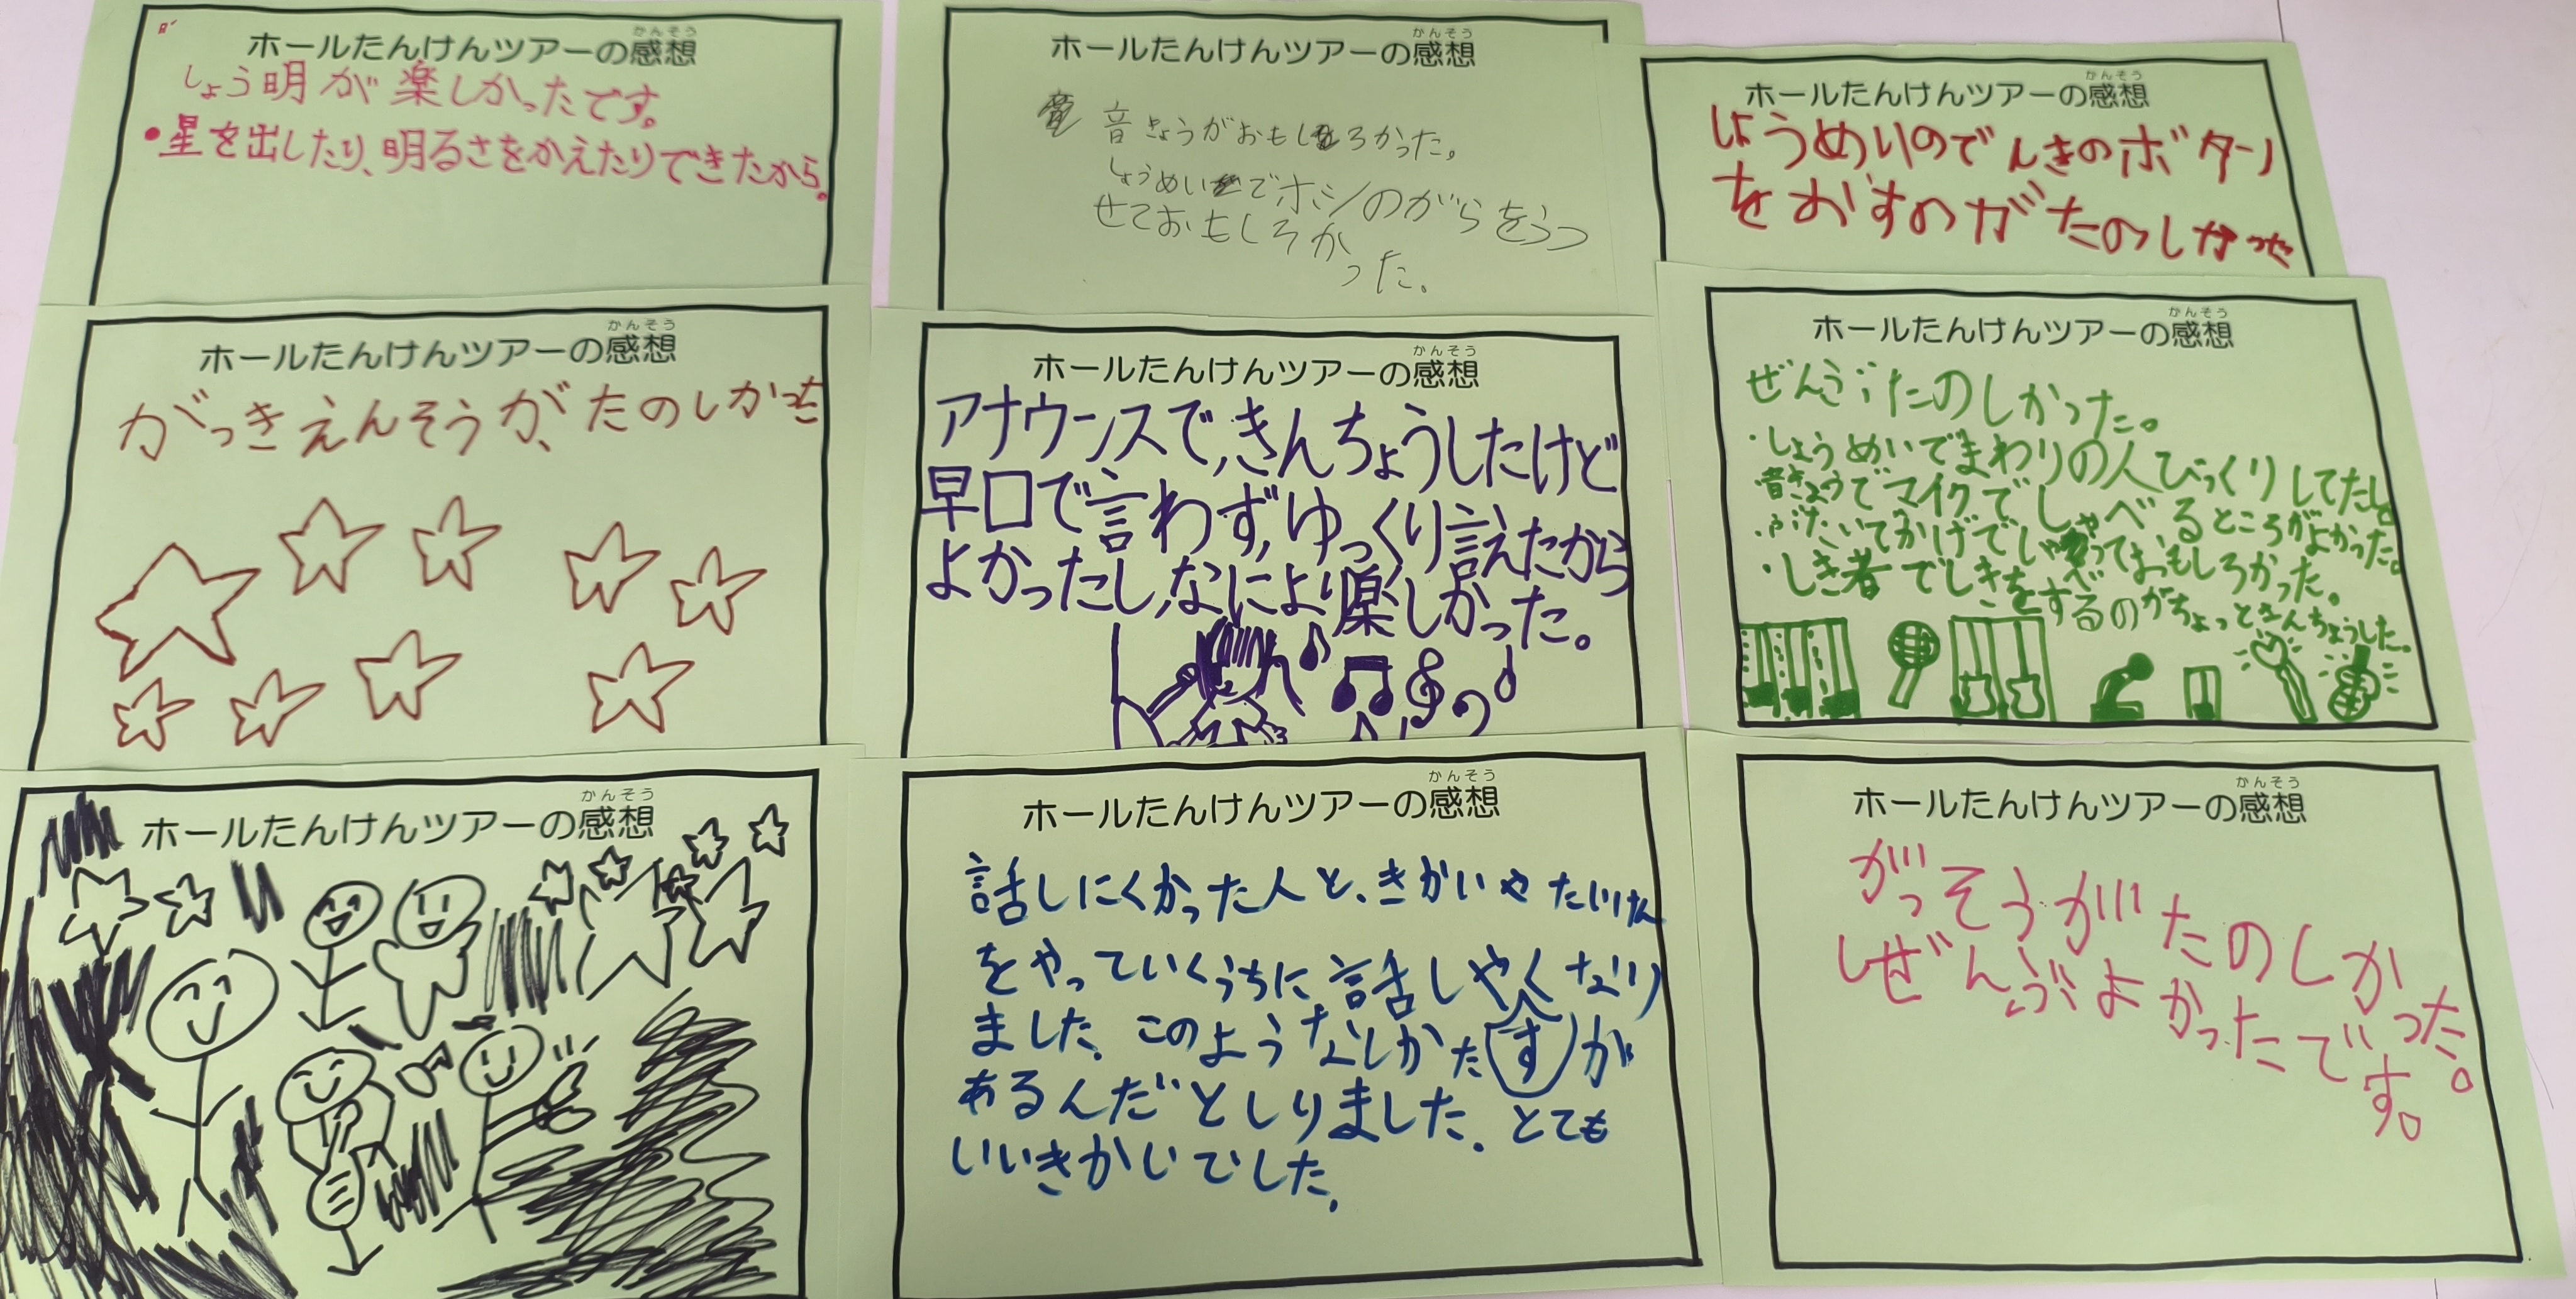 ホールたんけんツアーの感想
かんそう
しょう明が楽しかったです。
・星を出したり、明るさをかえたりできたから。
ホールたんけんツアーの感想
かんそう
音きょうがおもしろかった。
しょうめいでホシのがらをうつ
せておもしろか
った。
ホールたんけんツアーの感想
かんそう
しょうめいのでんきのボタン
をおすのがたのしかった
ホールたんけんツアーの感想
かんそう
がっきえんそうが、たのしかった
ホールたんけんツアーの感想
かんそう
アナウンスで、きんちょうしたけど
早口で言わず、ゆっくり言えたから
よかったし、なにより楽しかった。
ホールたんけんツアーの感想
かんそう
ぜんぶたのしかった。
・しょうめいでまわりの人びっくりしてたし
・音きょうでマイクでしゃべるところがよかった。
・ぶたいでかげでしゃべっておもしろかった。
・しき者でしきをするのがちょっときんちょうした。
ホールたんけんツアーの感想
かんそう
ホールたんけんツアーの感想
かんそう
話しにくかった人と、きかいやたいけん
をやっていくうちに、話しやすくなり
ました。このようなしかたが
あるんだとしりました。とても
いいきかいでした。
ホールたんけんツアーの感想
かんそう
がっそうがたのしかった。
しぜんぶよかったです。